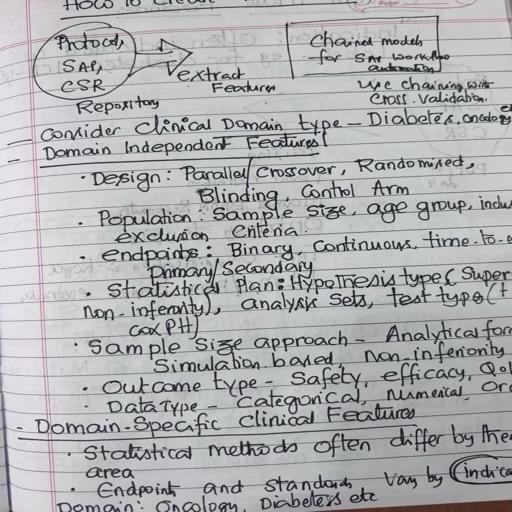 How to Create
Protocol,
SAP,
CSR
Repository
extract
Features
Chained models
for SAP workflow
automation
use chaining with
cross validation.
- Consider Clinical Domain type - Diabetes, oncology
- Domain Independent Features
• Design: Parallel/Crossover, Randomised,
Blinding, Control Arm
• Population: Sample size, age group, inclu
exclusion criteria
• endpoints: Binary, continuous, time-to-e
Primary/Secondary
• Statistical Plan: Hypothesis type (Super
non-inferority), analysis sets, test types (t
cox PH)
• Sample Size approach - Analytical for
Simulation based, non-inferiority
• Outcome type - Safety, efficacy, QoL
• Data Type - Categorical, Numerical, Or
- Domain-Specific Clinical Features
• Statistical methods often differ by the
area
• Endpoint and standards vary by (indica
Domain: Oncology, Diabetes etc